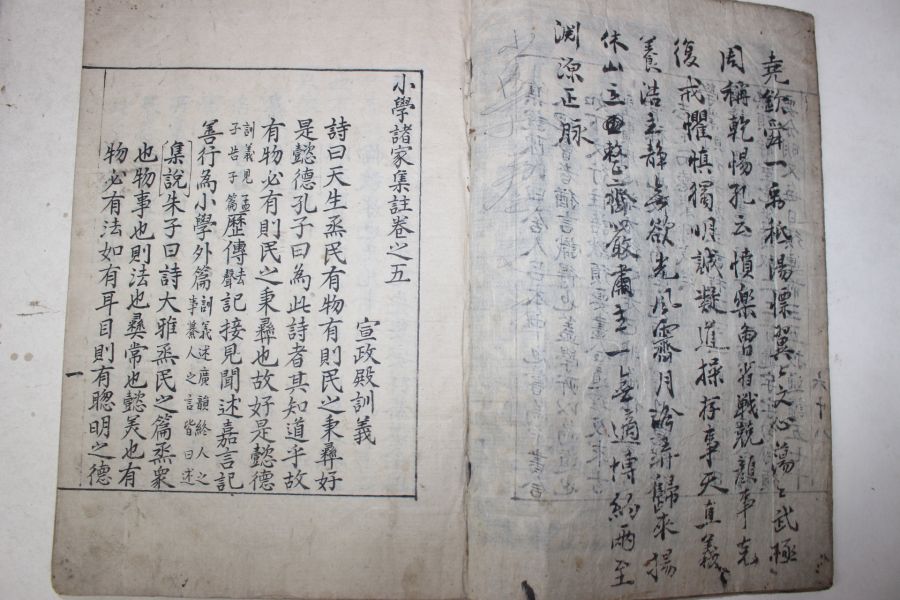 堯欽舜一禹祗湯慄翼〻文心蕩〻武極
周稱乾惕孔云憤樂曾省戰兢顔事克
復戒懼愼獨明誠凝道操存事天直義
養浩主静無欲光風霽月吟弄歸來揚
休山立整齊嚴肅主一無適博約兩至
淵源正脉
小學諸家集註卷之五
宣政殿訓義
詩曰天生烝民有物有則民之秉彝好
是懿德孔子曰為此詩者其知道乎故
有物必有則民之秉彝也故好是懿德
訓義見孟子告子篇歷傳去聲記接見聞述嘉言記
善行為小學外篇訓義述廣韻終人之事纂人之言皆曰述
集說朱子曰詩大雅烝民之篇烝衆
也物事也則法也彝常也懿美也有
物必有法如有耳目則有聰明之德
一